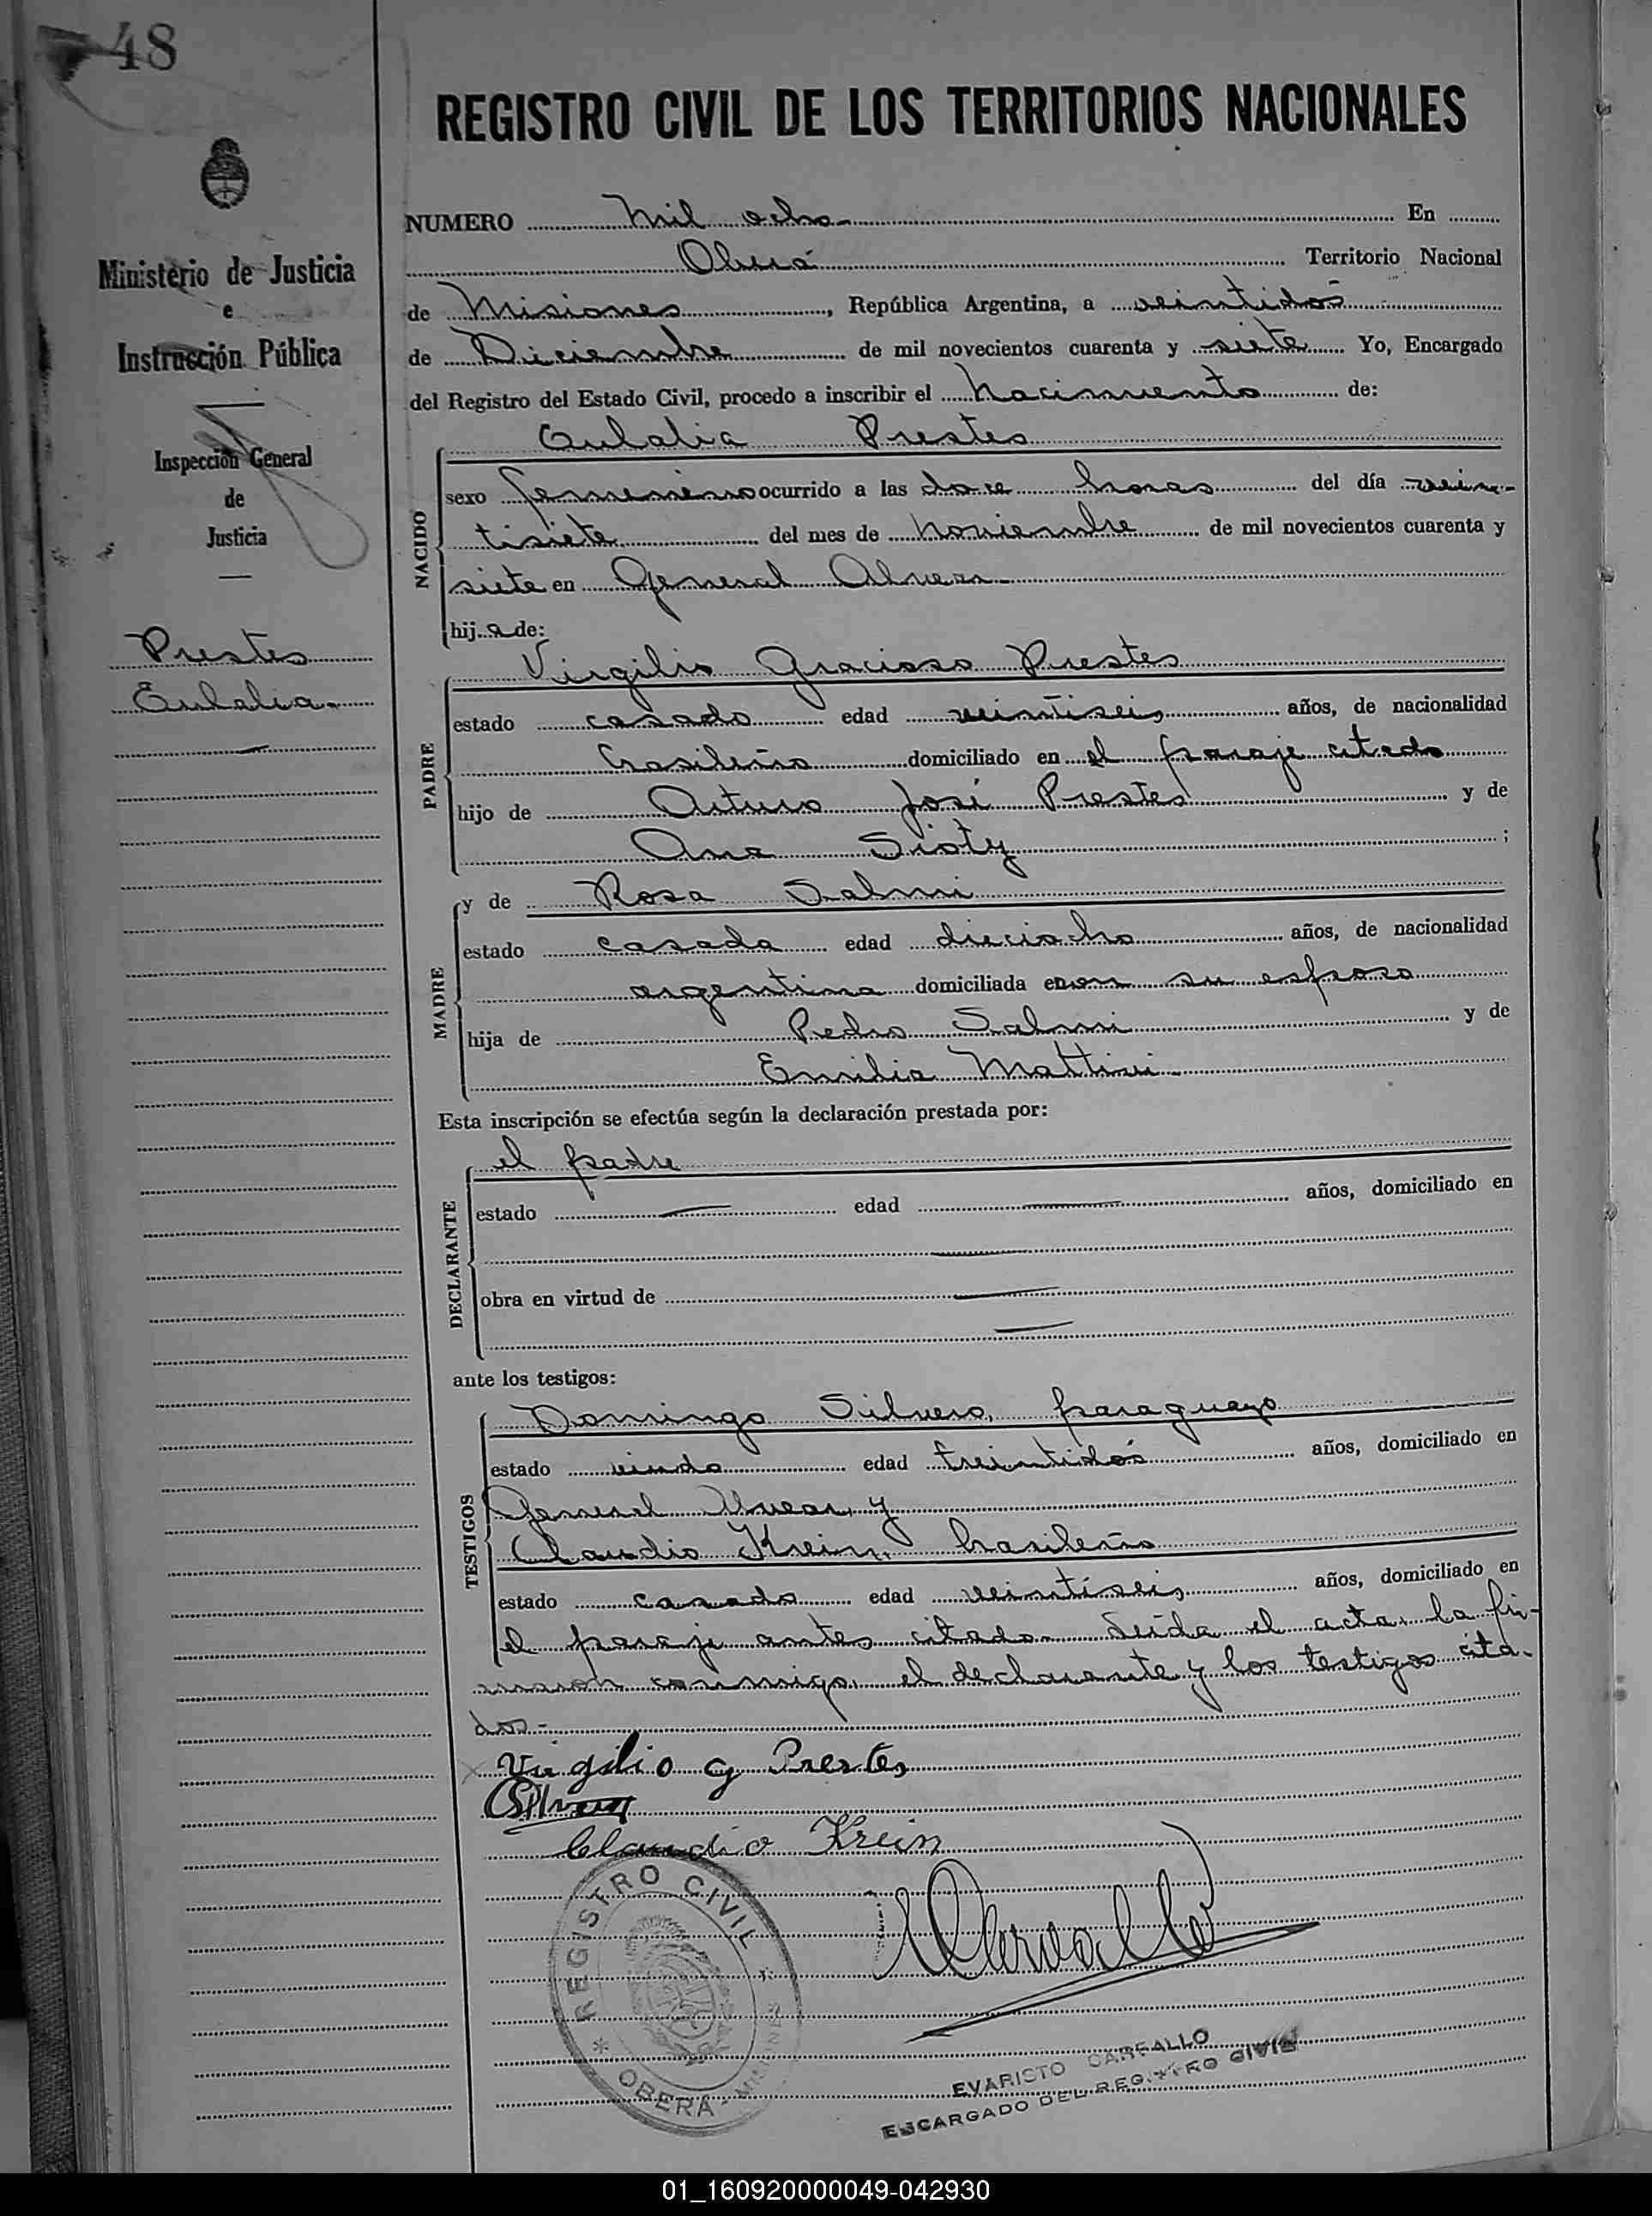 48
REGISTRO CIVIL DE LOS TERRITORIOS NACIONALES
Ministerio de Justicia
e
Instrucción Pública
Inspección General
de
Justicia
Prestes
Eulalia.
NUMERO mil ocho En
Oberá Territorio Nacional
de Misiones, República Argentina, a veintidós
de Diciembre de mil novecientos cuarenta y siete Yo, Encargado
del Registro del Estado Civil, procedo a inscribir el nacimiento de:
NACIDO
Eulalia Prestes
sexo femenino ocurrido a las doce horas del día vein-
tisiete del mes de noviembre de mil novecientos cuarenta y
siete en General Alvear
hija de:
PADRE
Virgilio Gracioso Prestes
estado casado edad veintiseis años, de nacionalidad
brasileña domiciliado en el paraje citado
hijo de Arturo José Prestes y de
Ana Sioty;
MADRE
y de Rosa Salmi
estado casada edad dieciocho años, de nacionalidad
argentina domiciliada con su esposo
hija de Pedro Salmi y de
Emilia Mattini
Esta inscripción se efectúa según la declaración prestada por:
DECLARANTE
el padre
estado edad años, domiciliado en
obra en virtud de
ante los testigos:
TESTIGOS
Domingo Silvero, paraguayo
estado viudo edad treintidós años, domiciliado en
General Alvear, y
Claudio Krein, brasileño
estado casado edad veintiseis años, domiciliado en
el paraje antes citado. Leída el acta, la fir-
maron conmigo, el declarante y los testigos cita-
dos.-
Virgilio G Prestes
Claudio Krein
REGISTRO CIVIL
* OBERÁ - MISIONES *
EVARISTO CARFALLO
ENCARGADO DEL REGISTRO CIVIL
01_160920000049-042930